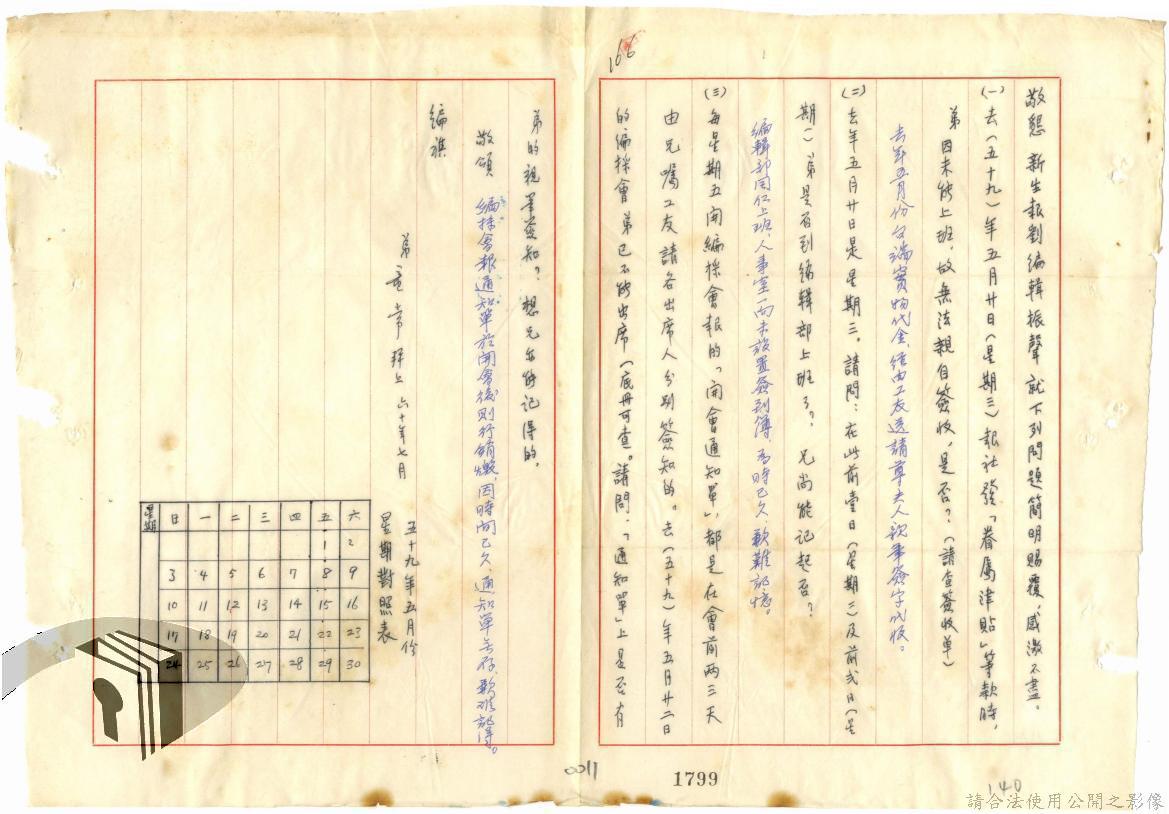 166
敬懇 新生報劉編輯振聲 就下列問題簡明賜覆,感激不盡。
(一)去(五十九)年五月廿日(星期三)報社發「眷屬津貼」等款時,
弟因未能上班,故無法親自簽收,是否?(請查簽收單)
去年五月份勾端實物代金,經由工友送請尊夫人親筆簽字代收。
(二)去年五月廿日是星期三。請問:在此前壹日(星期二)及前弍日(星
期一)弟是否到編輯部上班了?兄尚能記起否?
編輯部同仁上班,人事室一向未設置簽到簿,為時已久,歉難記憶。
(三)每星期五開編採會報的「開會通知單」,都是在會前兩三天
由兄囑工友請各出席人分別簽知的。去(五十九)年五月廿二日
的編採會弟已不能出席(底冊可查。請問:「通知單」上是否有
弟的親筆簽知?想兄亦能記得的。
編採會報通知單於開會後則行銷燬,因時間已久,通知單無存,歉難記憶。
敬頌
編祺
弟 童常 拜上 六十年七月
五十九年五月份
星期對照表
星期 日 一 二 三 四 五 六
1 2
3 4 5 6 7 8 9
10 11 12 13 14 15 16
17 18 19 20 21 22 23
24 25 26 27 28 29 30
0011
1799
140
請合法使用公開之影像